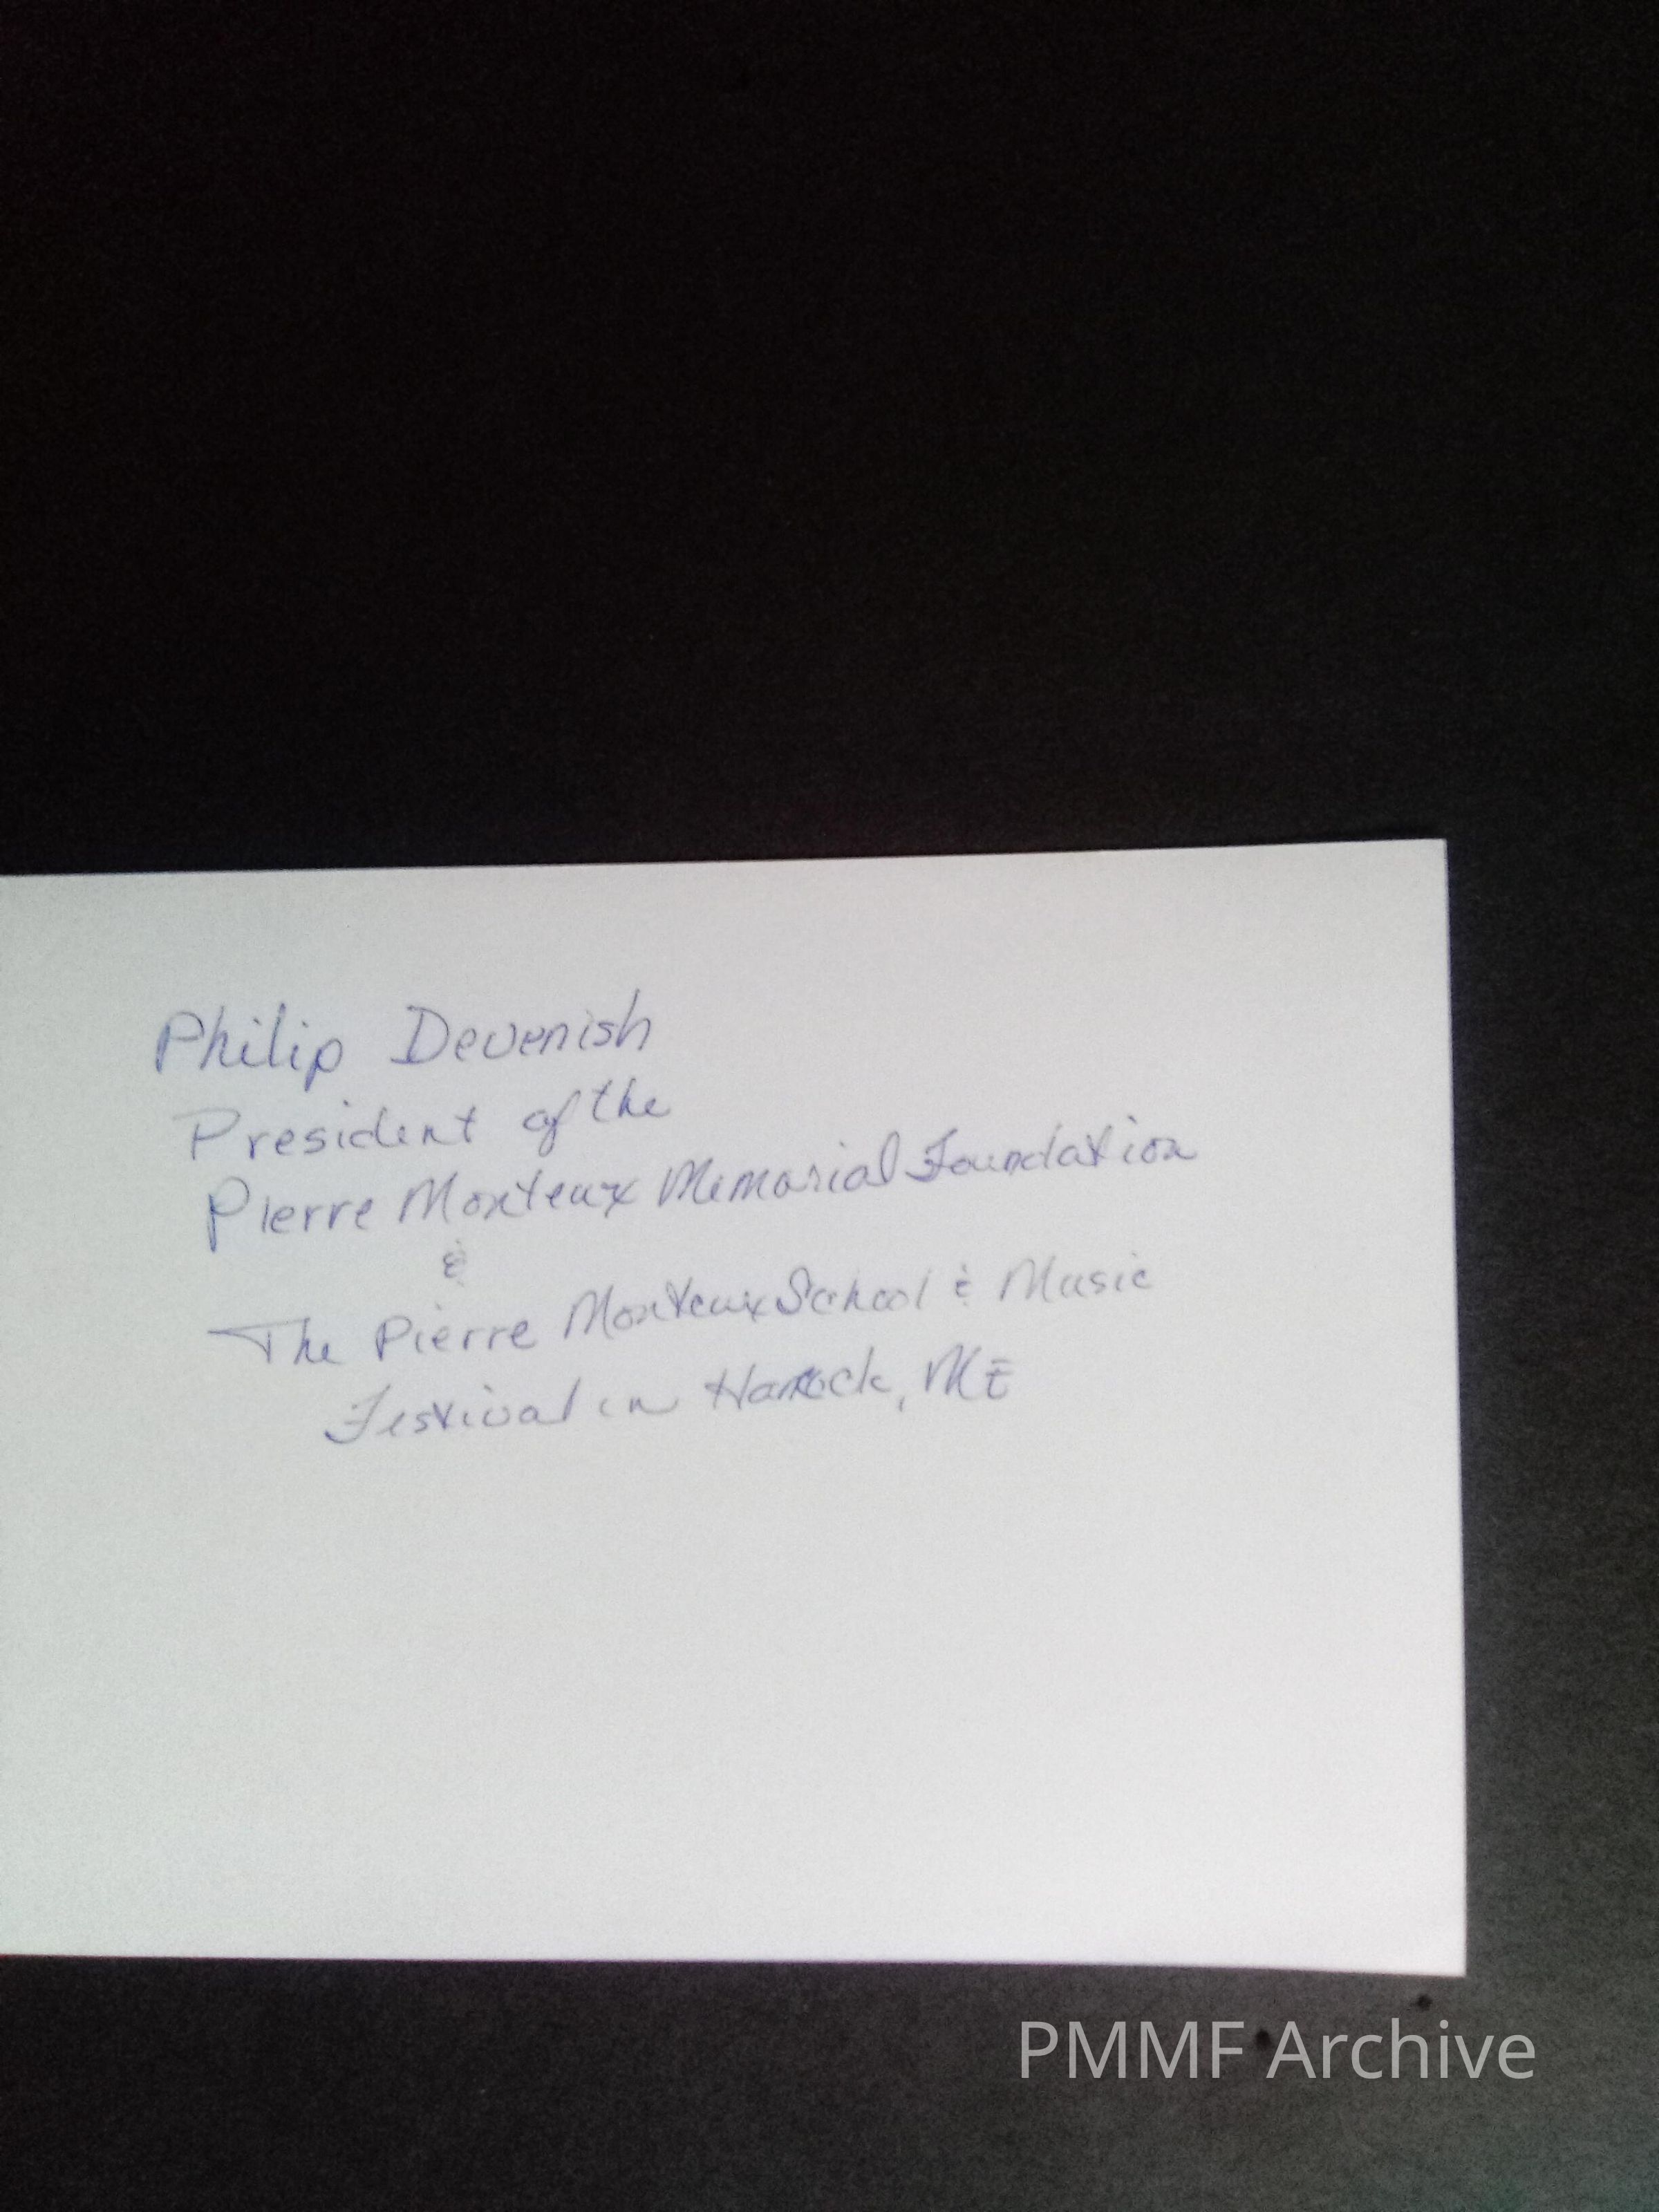 Philip Devenish
President of the
Pierre Monteux Memorial Foundation
&
The Pierre Monteux School & Music
Festival in Hancock, ME
PMMF Archive